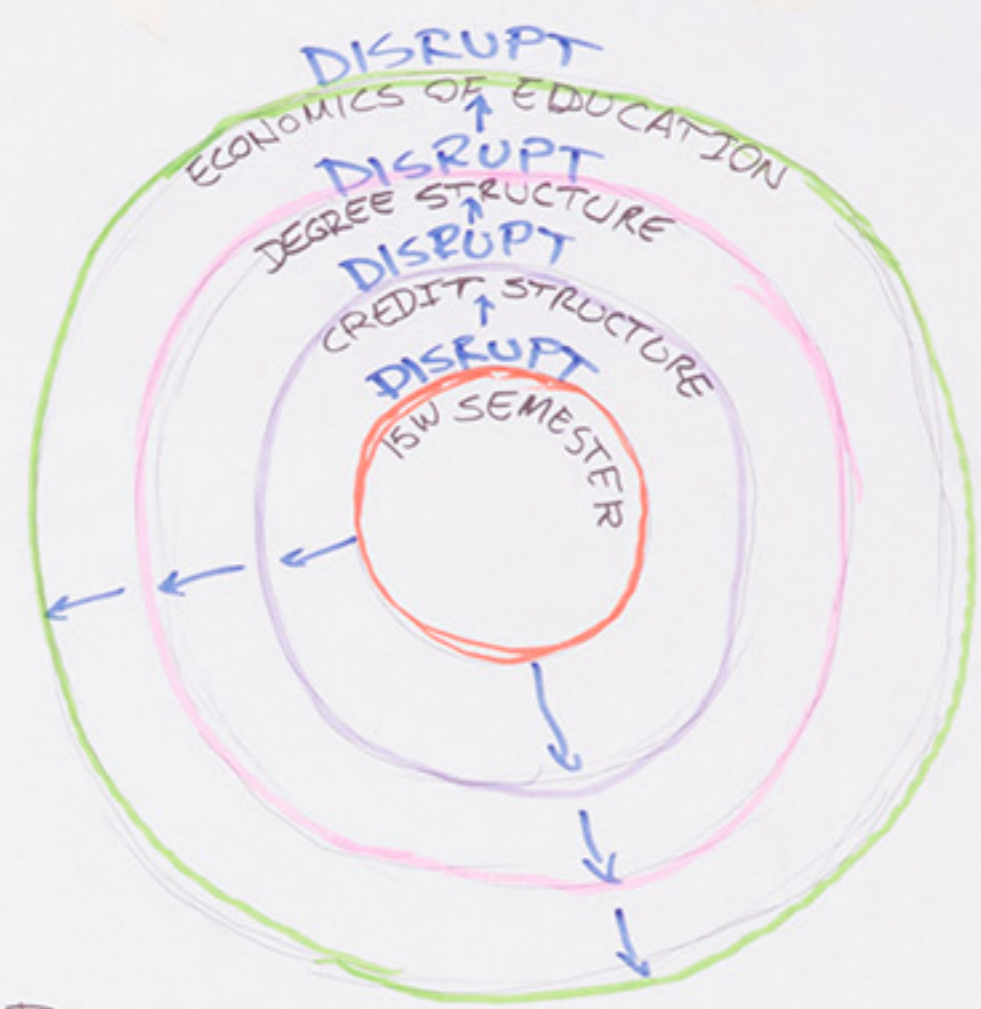 DISRUPT
ECONOMICS OF EDUCATION
DISRUPT
DEGREE STRUCTURE
DISRUPT
CREDIT STRUCTURE
DISRUPT
15W SEMESTER